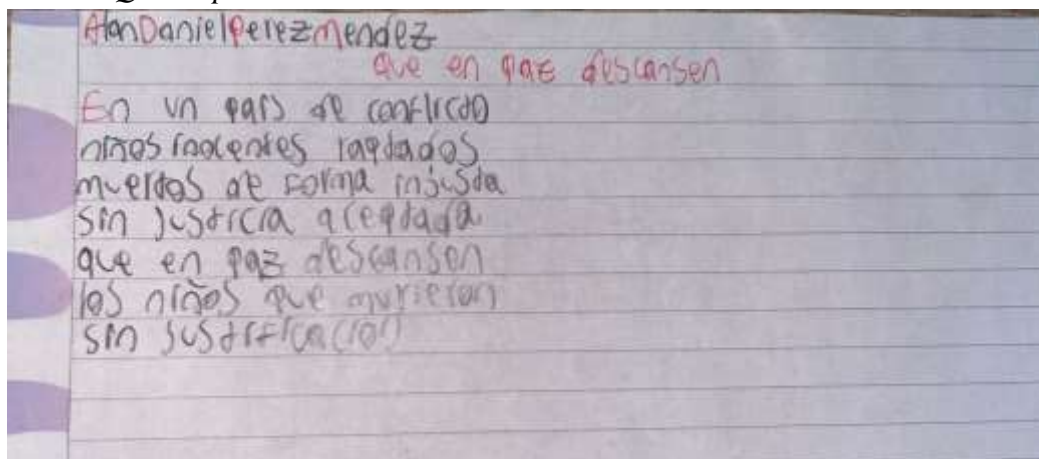 AlanDanielPerezMendez
que en paz descansen
En un pais de conflicto
niños inocentes raptados
muertos de forma injusta
sin justicia aceptada
que en paz descansen
los niños que murieron
sin justificacion